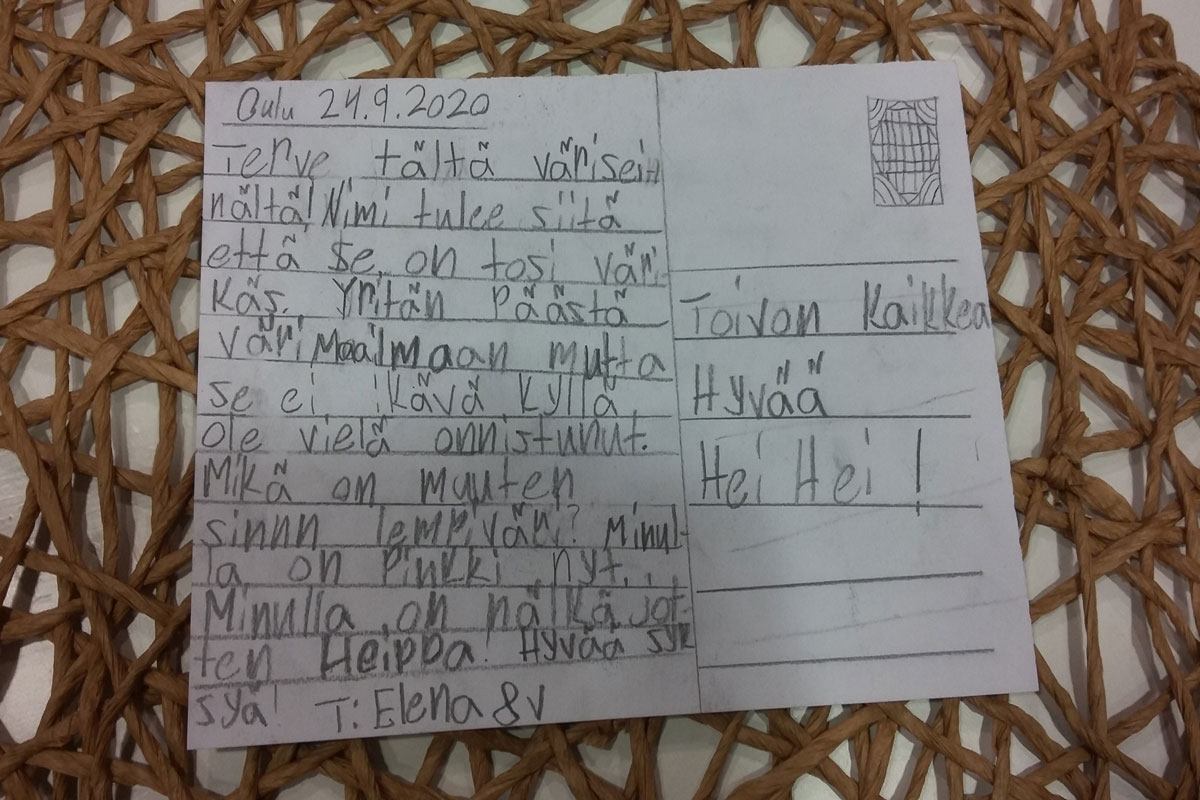 Oulu 24.9.2020
Terve tältä värisei-
nältä! Nimi tulee siitä
että se on tosi väri-
käs. Yritän päästä
värimaailmaan mutta
se ei ikävä kyllä
ole vielä onnistunut.
Mikä on muuten
sinun lempiväri? Minul-
la on Pinkki nyt.
Minulla on nälkä jot-
ten Heippa! Hyvää syk
syä! T: Elena 8v
Toivon Kaikkea
Hyvää
Hei Hei!